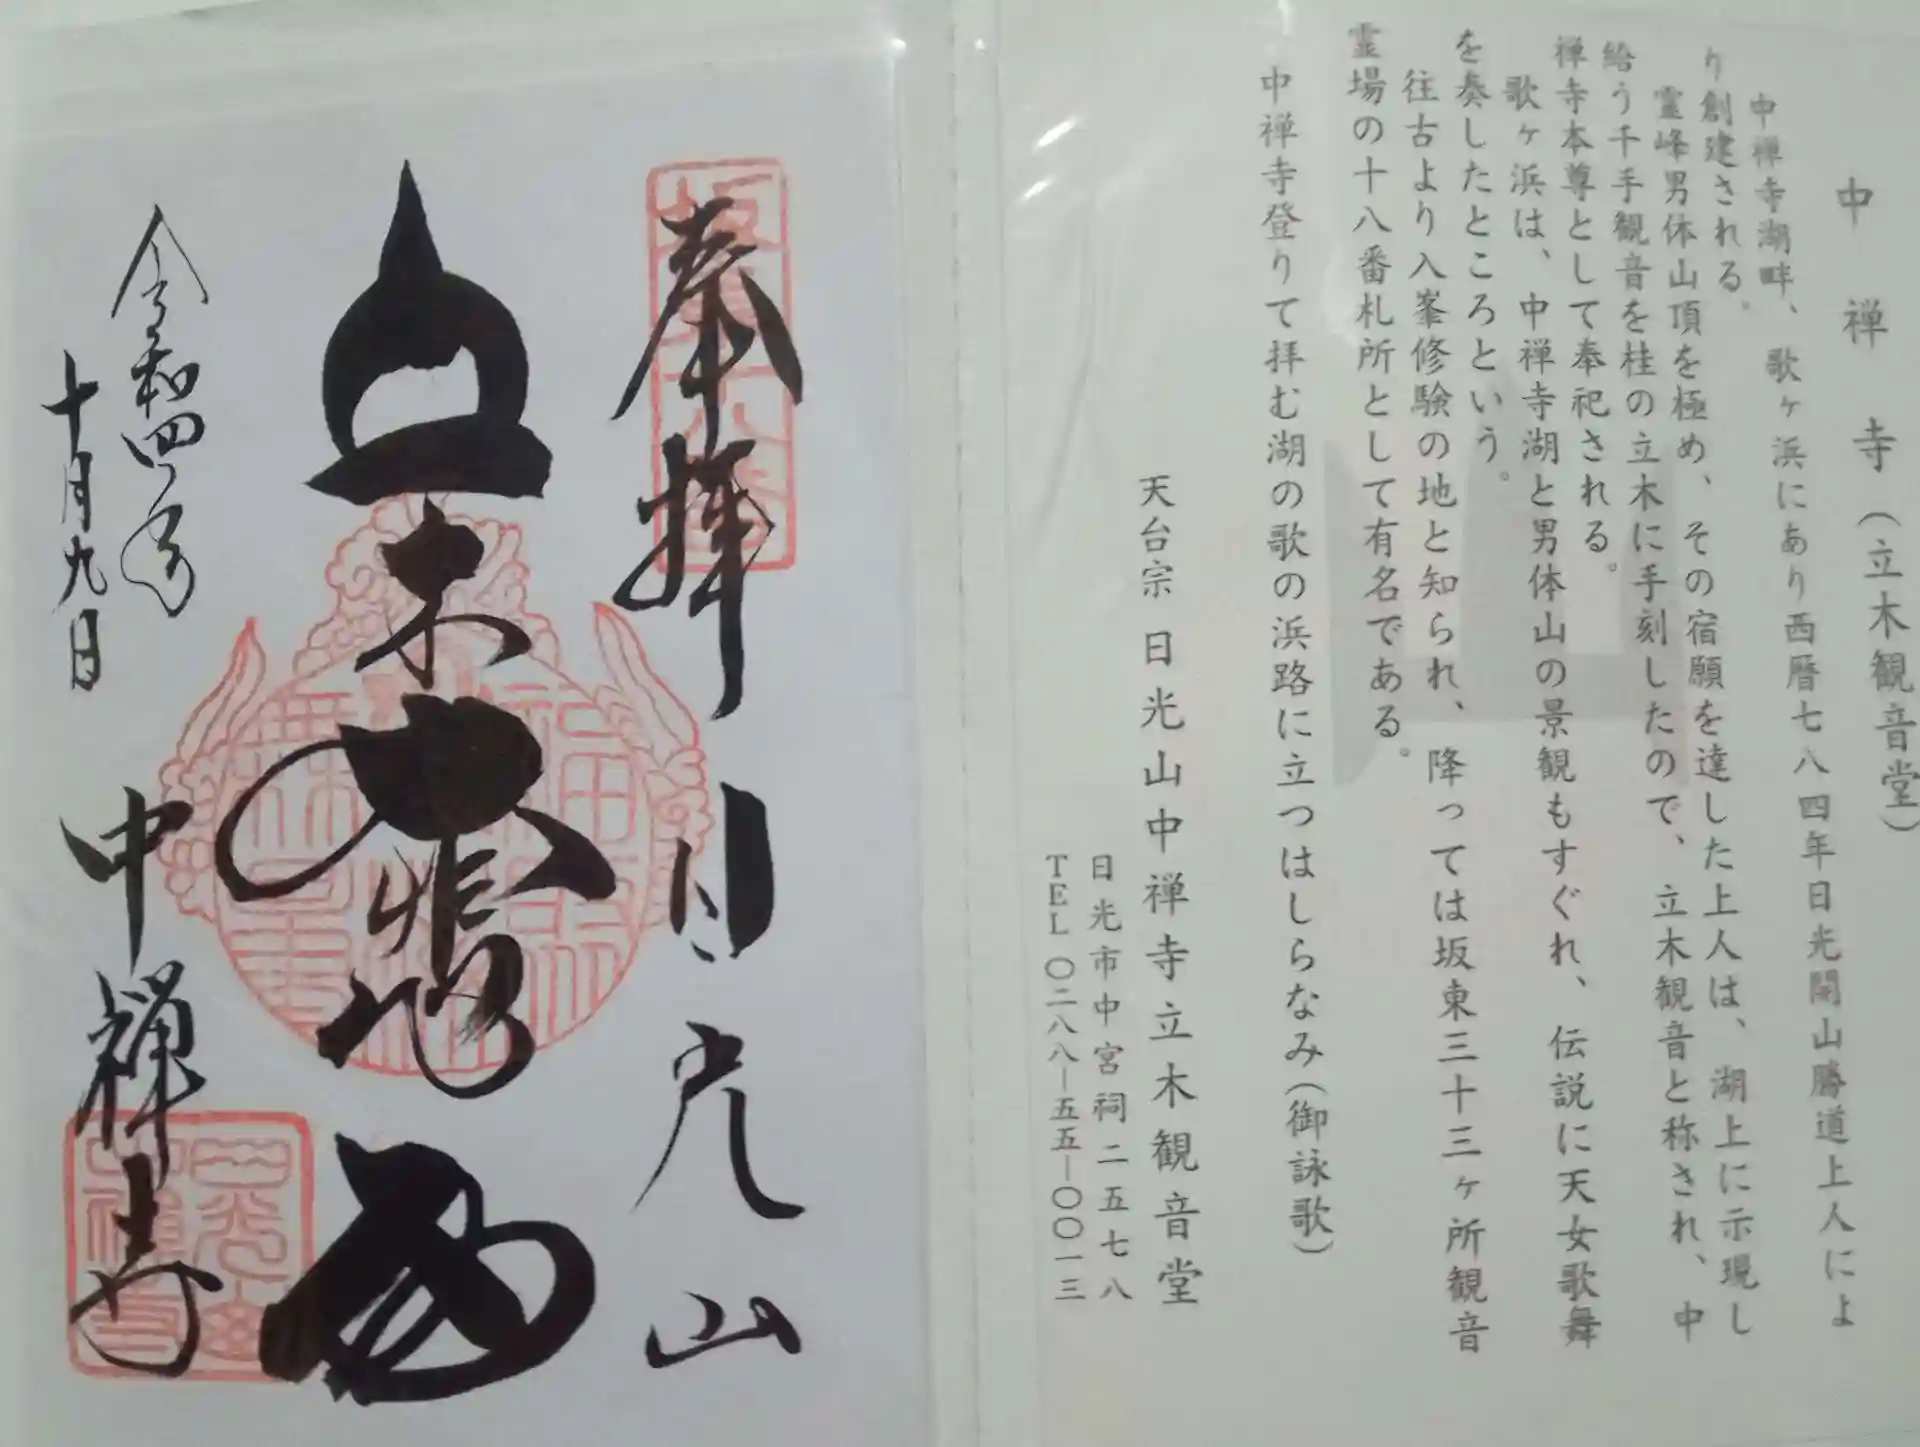 中禅寺（立木観音堂）
中禅寺湖畔、歌ヶ浜にあり西暦七八四年日光開山勝道上人によ
り創建される。
霊峰男体山頂を極め、その宿願を達した上人は、湖上に示現し
給う千手観音を桂の立木に手刻したので、立木観音と称され、中
禅寺本尊として奉祀される。
歌ヶ浜は、中禅寺湖と男体山の景観もすぐれ、伝説に天女歌舞
を奏したところという。
往古より入峯修験の地と知られ、降っては坂東三十三ヶ所観音
霊場の十八番札所として有名である。
中禅寺登りて拝む湖の歌の浜路に立つはしらなみ（御詠歌）
天台宗 日光山中禅寺立木観音堂
日光市中宮祠二五七八
TEL 〇二八八−五五−〇〇一三
奉拝 日光山
立木大悲殿
令和四年
十月九日
中禅寺